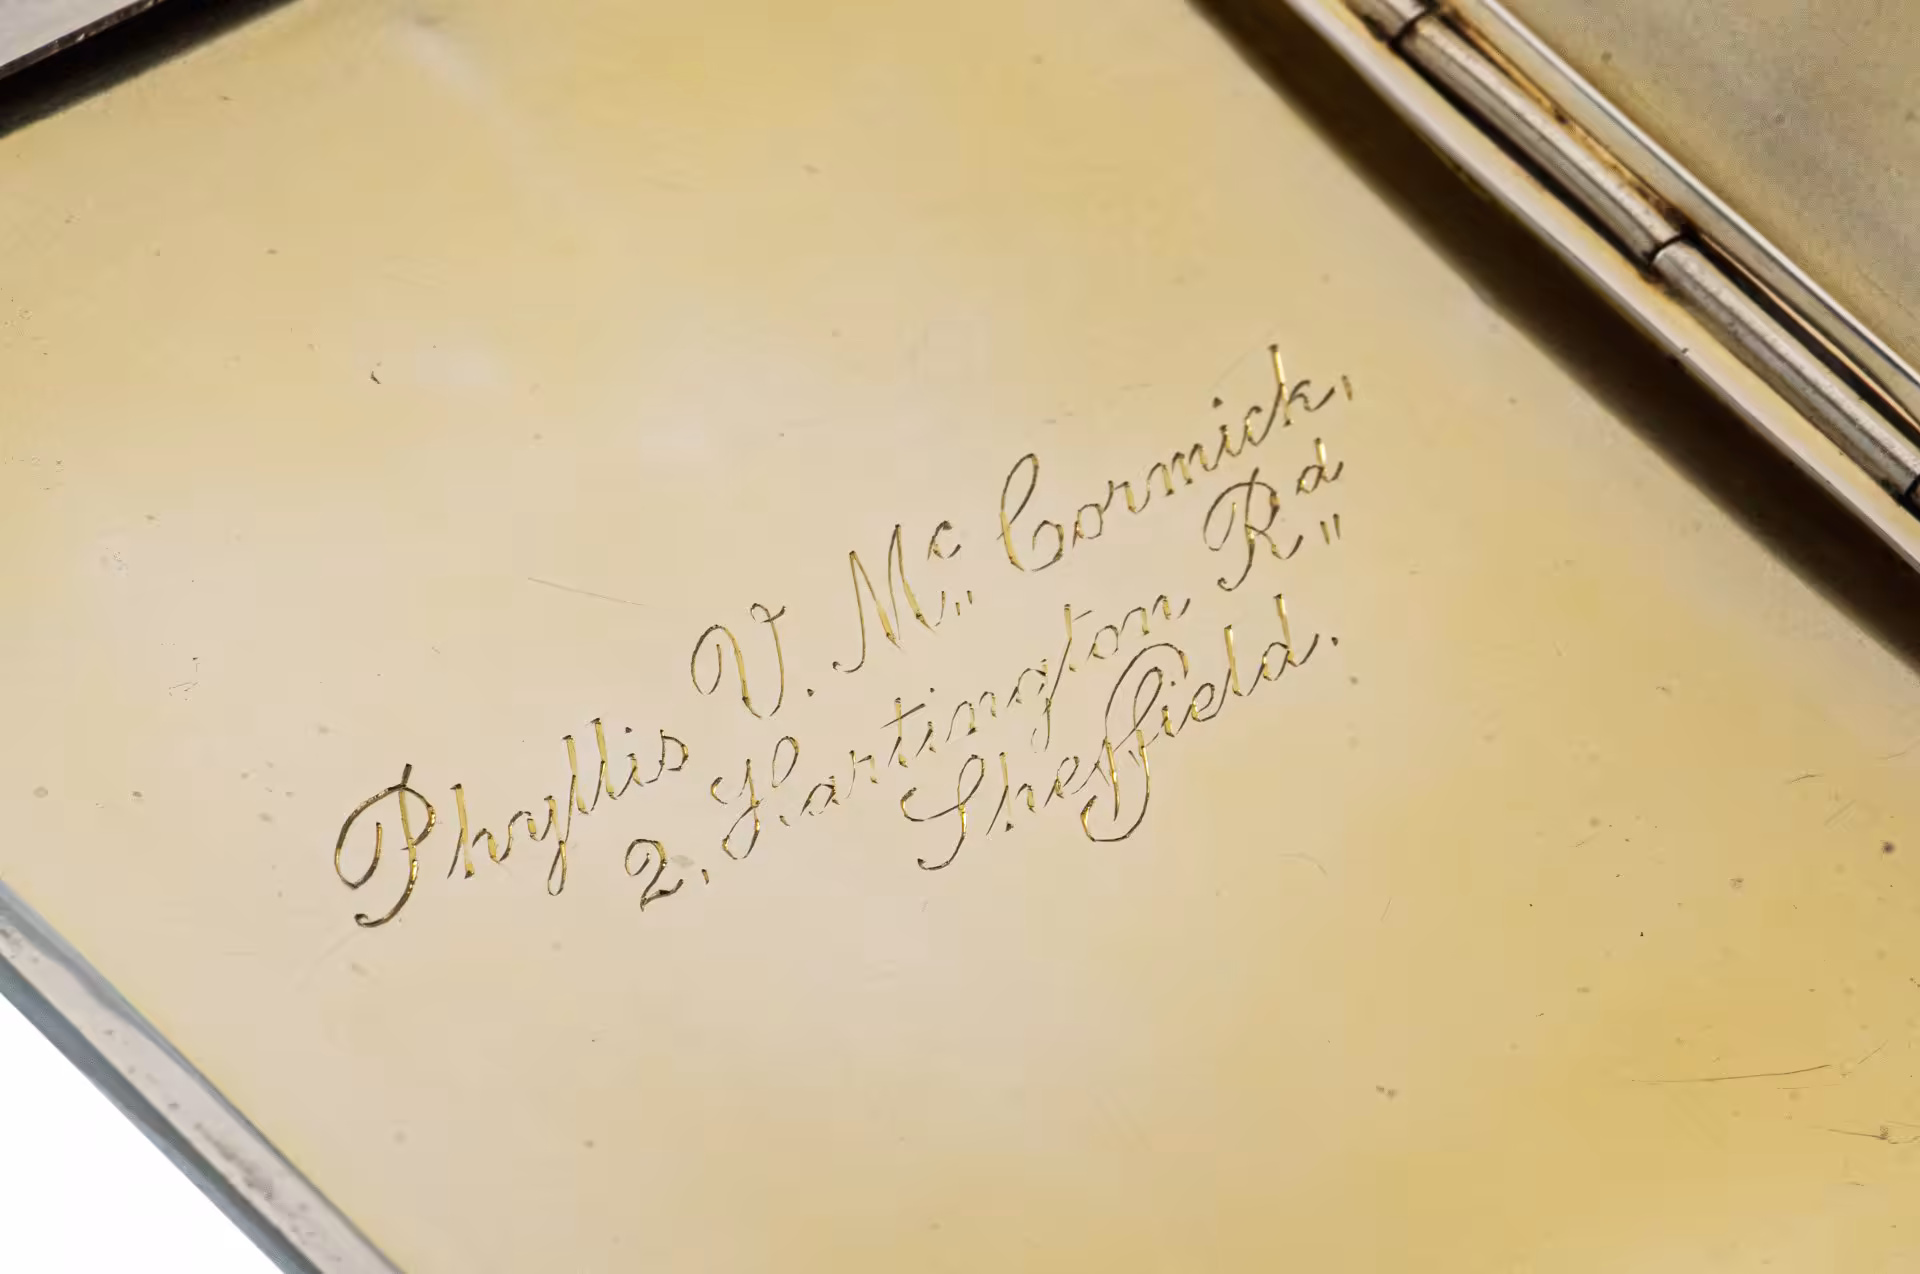 Phyllis V. Mc Cormick,
2, Hartington Rd
Sheffield.